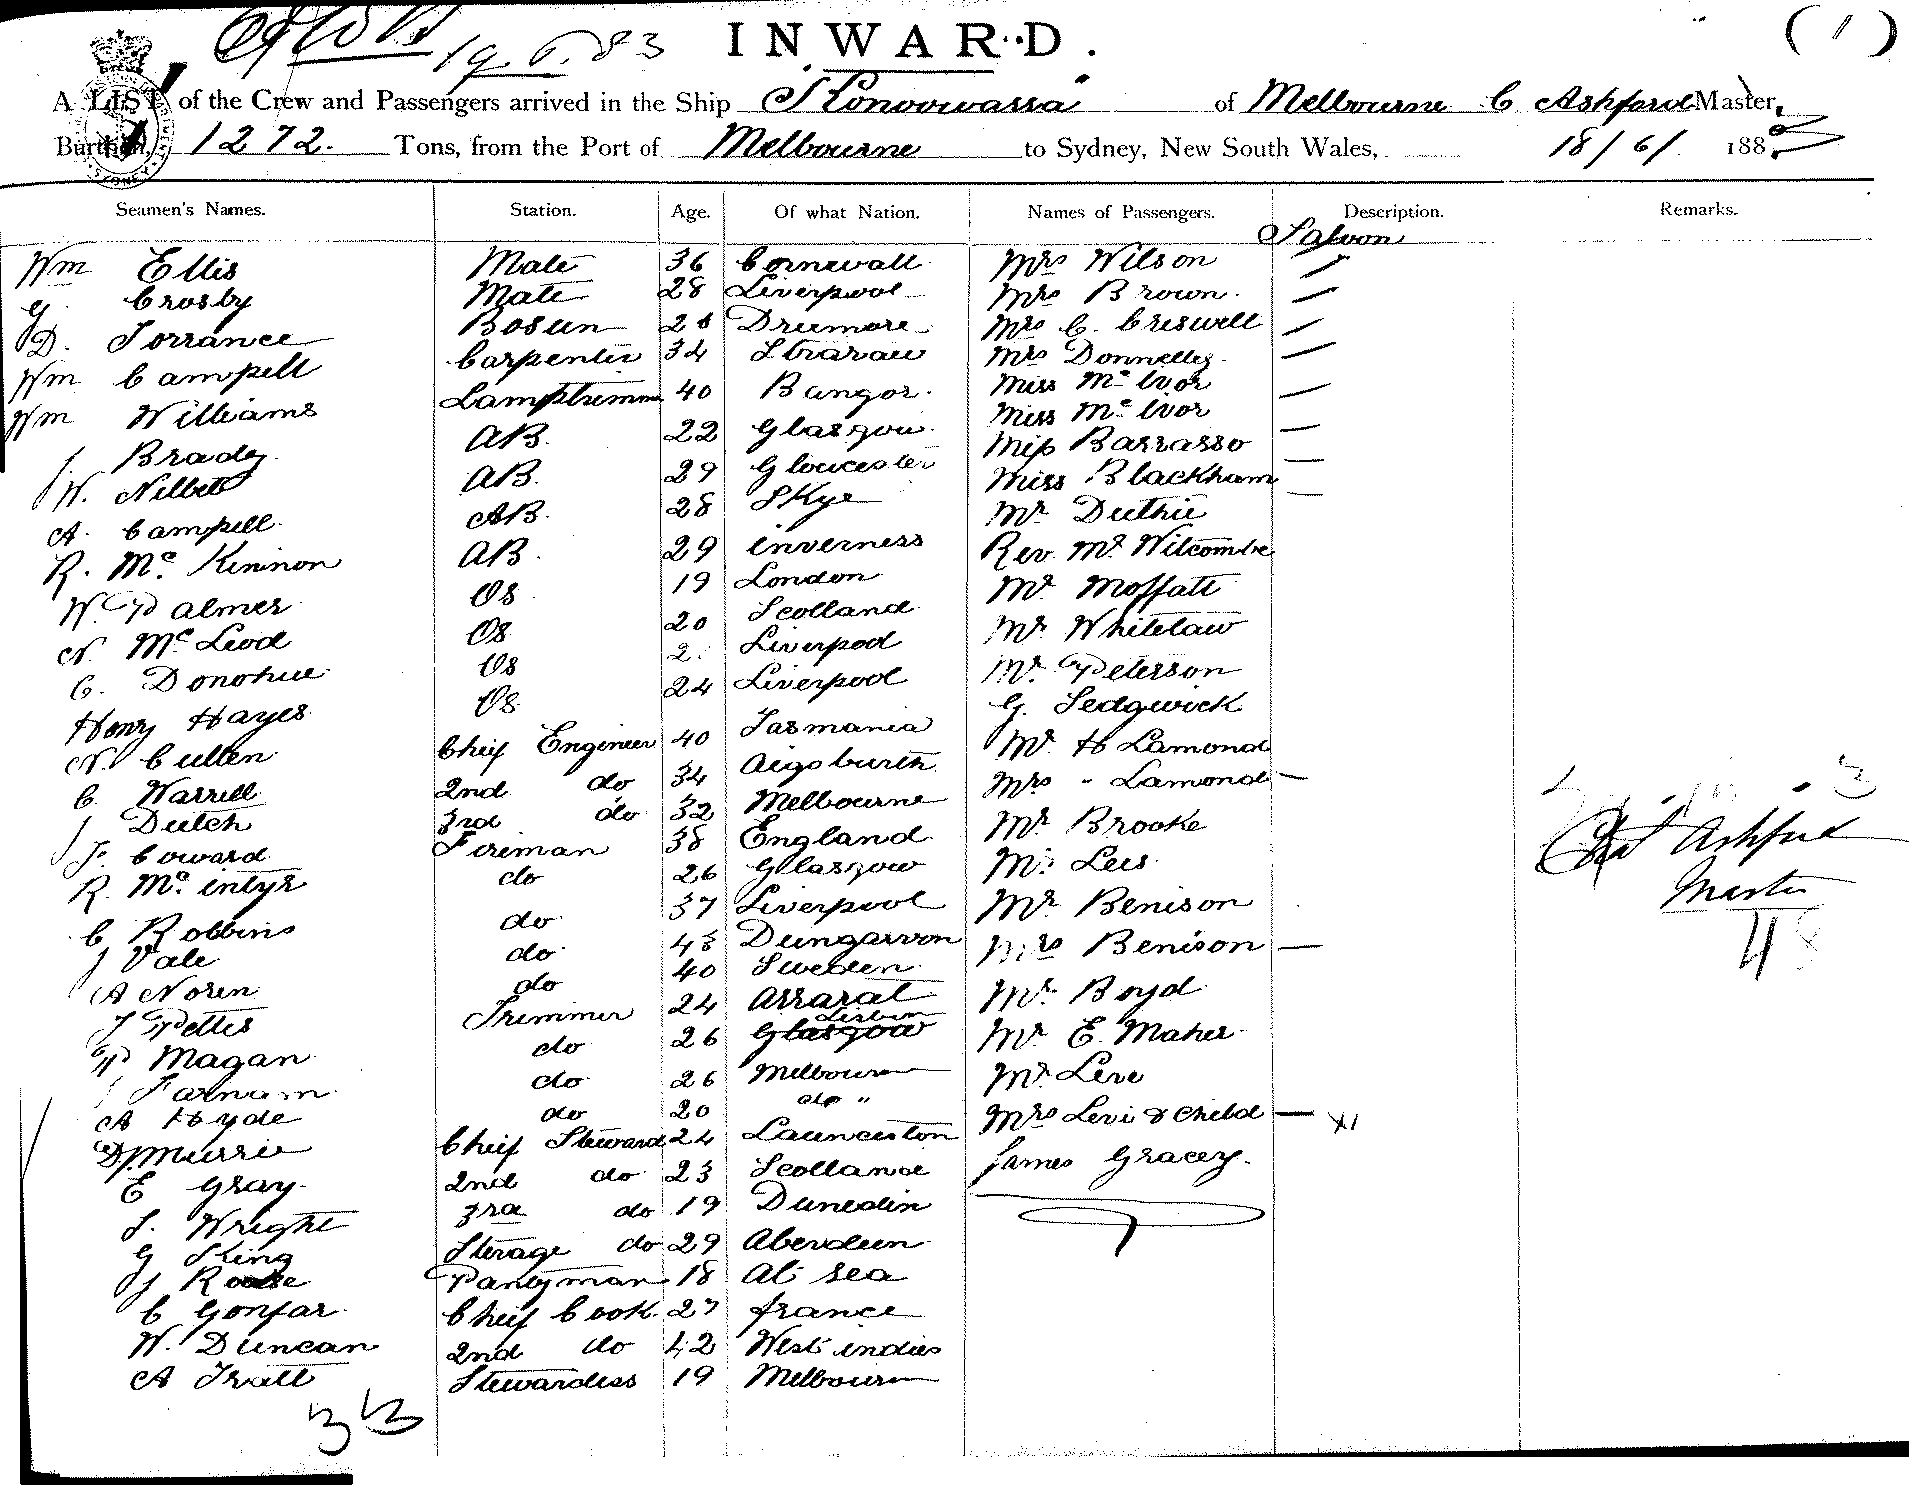 19.6.83
INWARD.
(1)
A LIST of the Crew and Passengers arrived in the Ship Konoowarra of Melbourne C Ashford Master,
Burthen, 1272. Tons, from the Port of Melbourne to Sydney, New South Wales, 18/6/ 1883
Seamen's Names. Station. Age. Of what Nation. Names of Passengers. Description. Remarks.
Saloon
Wm Ellis Mate 36 Cornwall Mrs Wilson
G. Crosby Mate 28 Liverpool Mrs Brown.
D. Torrance Bosun 28 Drumore Mrs C. Creswell
Wm Campell Carpenter 34 Stranraer Mrs Donnelly
Wm Williams Lamptrimmer 40 Bangor. Miss McIvor
J. Brady AB. 22 Glasgow. Miss McIvor
W. AB. 29 Gloucester Miss Barrasso
A. Campell AB. 28 Skye Miss Blackham
R. Mc Kinnon AB. 29 inverness Mr Duthie
W. Palmer OS 19 London Rev. Mr. Witcombe
N. McLeod OS 20 Scotland Mr Moffatt
C. Donohue OS Liverpool Mr Whitelaw
Henry Hayes OS 24 Liverpool Mr. Peterson
N. Cullen Chief Engineer 40 Tasmania G. Sedgwick
C. Warrell 2nd do 34 Aigsburth Mr. H Lamond
J Dutch 3rd do 32 Melbourne Mrs " Lamond
J. Coward Fireman 38 England Mr. Brooke
R. Mc intyr do 26 Glasgow Mr Lees
C Robbins do 37 Liverpool Mr Benison
J Vale do 43 Dungarvon Mrs Benison
A Noren do 40 Sweden Mr. Boyd
J Pettis Trimmer 24 Arrarat Mr E. Maher
P Magan do 26 Glasgow Lisbon Mr. Leve
J Farnum do 26 Melbourn Mrs Levi & Child
A Hyde do 20 do " James Gracey.
D. Murrie Chief Steward 24 Launceston
E Gray. 2nd do 23 Scotland
J. Wright 3rd do 19 Dunedin
G King Sterage do 29 Aberdeen
J Roase Pantyman 18 At sea
C Gonfar Chief Cook. 27 france
W. Duncan 2nd do 42 West indies
A Tratt Stewardess 19 Melbourn
33
Chas Ashford
Master